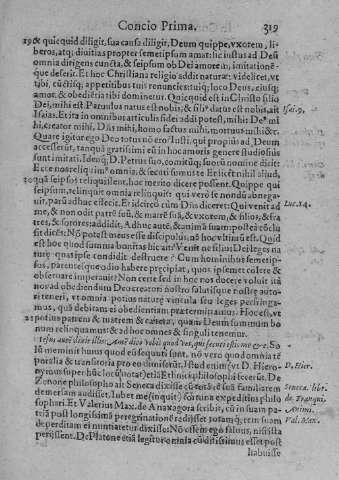 Concio Prima. 319
19 & quicquid diligit, sua causa diligit, Deum quippe, vxorem, li-
beros, atq; diuitias propter semetipsum amat: hic iustus ad Deum
omnia dirigens cuncta, & seipsum ob Dei amorem,
que deserit. Et hoc Christiana religio addit naturæ: videlicet, vt
tibi, cuctisq; appetitibus tuis renuncies: tuiq; loco Deus, eiusq;
amor, & obedientia tibi dominetur. Quicquid est in Christo filio
Dei, mihi est. Paruulus natus est nobis, & filius datus est nobis, ait Isai. 9.
Isaias. Et ita in omnibus articulis fidei addi potest, mihi: Deus mi
hi creator, mihi, Dns mihi, homo factus mihi, mortuus mihi &c.
Quare igitur ego Deo totus non ero? Iusti, qui propius ad Deum
accesserut, tanquã gratissimi
sunt imitati. Ideoq; D. Petrus suo, comitumq; suorum nomine dicit:
Ecce nos reliquimus omnia, & secuti sumus te. Et licet nihil aliud,
20 quàm seipsos reliquissent, hoc merito dicere possent. Quippe qui
seipsum, relinquit omnia relinquit: qui verò se nondũ abnega-
uit, parũ adhuc efficit. Et idcirco cũm Dñs diceret: Qui venit ad Luc. 14.
me, & non odit patrẽ suũ, & matrẽ suã, & vxorem, & filios, & fra
tres, & sorores: addidit. Adhuc autẽ, & animã suam: postea cõclu
sit dicẽs: Nõ potest meus esse discipulus, nõ hoc vltimũ efficit. Quid
est hoc quod summa bonitas hic ait? Venit ne filius Dei leges na
turæ quas ipse condidit destruere? Cum hominibus semetip-
sos, parentesque odio habere præcipiat, quos ipsemet colere &
obseruare imperauit? Non certe sed in hoc nos docere voluit ita
nos ad obediendum Deo creatori nostro salutisque nostræ auto
ri teneri, vt omnia potius naturæ vincula seu leges
mus, quã debitam ei obedientiam prætermittamus. Hoc est, vt
21 potius patrem & matrem & cætera, quàm Deum summum bo
num relinquamus: & ad hoc omnes & singuli tenemur.
Iesus autẽ dixit illis: Amẽ dico vobis quod vos, qui secuti estis me &c. So
lũ meminit huius quod eũ sequuti sunt, nõ verò quod omnia tẽ
poralia & transitoria pro eo dimiserint. Istud enim (vt D. Hiero- D. Hier.
nymus super hũc locũ notat) etiã Ethnici philosophi fecerũt. De
Zenone philosopho ait Seneca dixisse cũ totã rẽ suã familiarem Seneca. libr.
demersam audisset. Iubet me (inquit) fortuna expeditius philo de Tranqui.
sophari. Et Valerius Max. de Anaxagora scribit, cũ in suam pa- Animi.
triã post longissimã peregrinationẽ redijsset possessiones Val. Max.
deperditam ei nuntiatetur dixisse: Nõ essem ego saluus, nisi istæ
perijssent. De Platone etiã legitur omnia cũ ditissimus esset post
habuisse